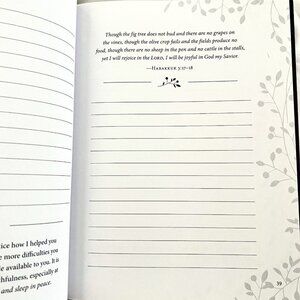 ice how I helped you
more difficulties you
available to you. It is
thfulness, especially at
and sleep in peace.
Though the fig tree does not bud and there are no grapes on
the vines, though the olive crop fails and the fields produce no
food, though there are no sheep in the pen and no cattle in the stalls,
yet I will rejoice in the LORD, I will be joyful in God my Savior.
—HABAKKUK 3:17–18
39